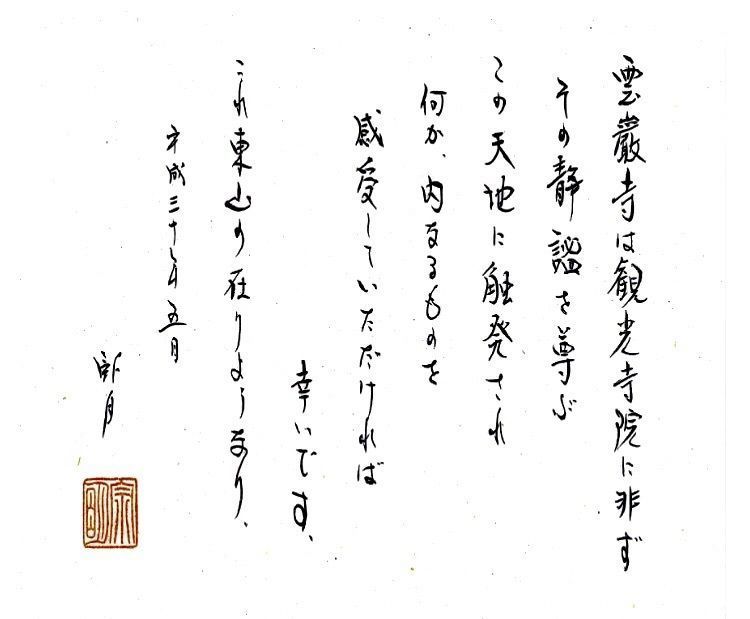 雲巌寺は観光寺院に非ず
その静謐を尊ぶ
この天地に触発され
何か、内なるものを
感受していただければ
幸いです、
これ東山の在りようなり、
平成三十年五月
臥月